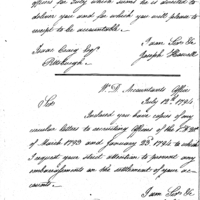 officers for duty which sum he is directed to
deliver you and for which you will please to
accept to be accountable.
I am Sir &c
Isaac Craig Esqr. Joseph Howell
Pittsburgh
W. D. Accountants Office
Sir July 12th 1794
Inclosed you have copies of my
circular letters to recruiting officers of the
of March 1793 and January 23d 1794 to which
I request your strict attention to prevent any
embarrassments in the settlement of your ac-
counts.
I am Sir &c